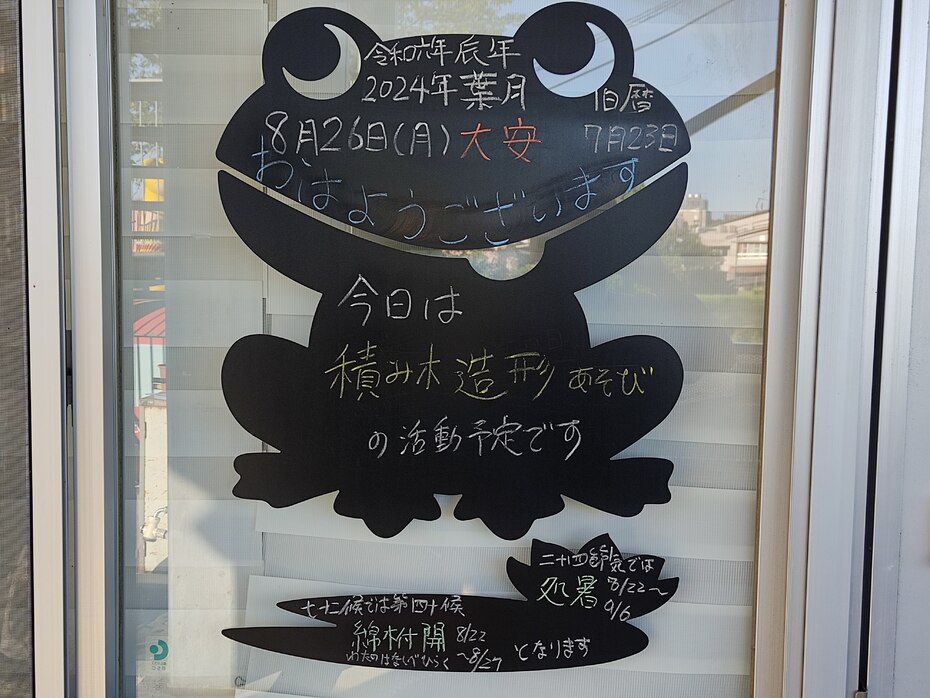 令和六年 辰年
2024年 葉月
旧暦
8月26日(月) 大安
7月23日
おはようございます
今日は
積み木 造形 あそび
の活動予定です
二十四節気では
処暑 8/22～
9/6
七十二候では第四十候
綿柎開 8/22
わたのはなしべひらく ～8/27
となります